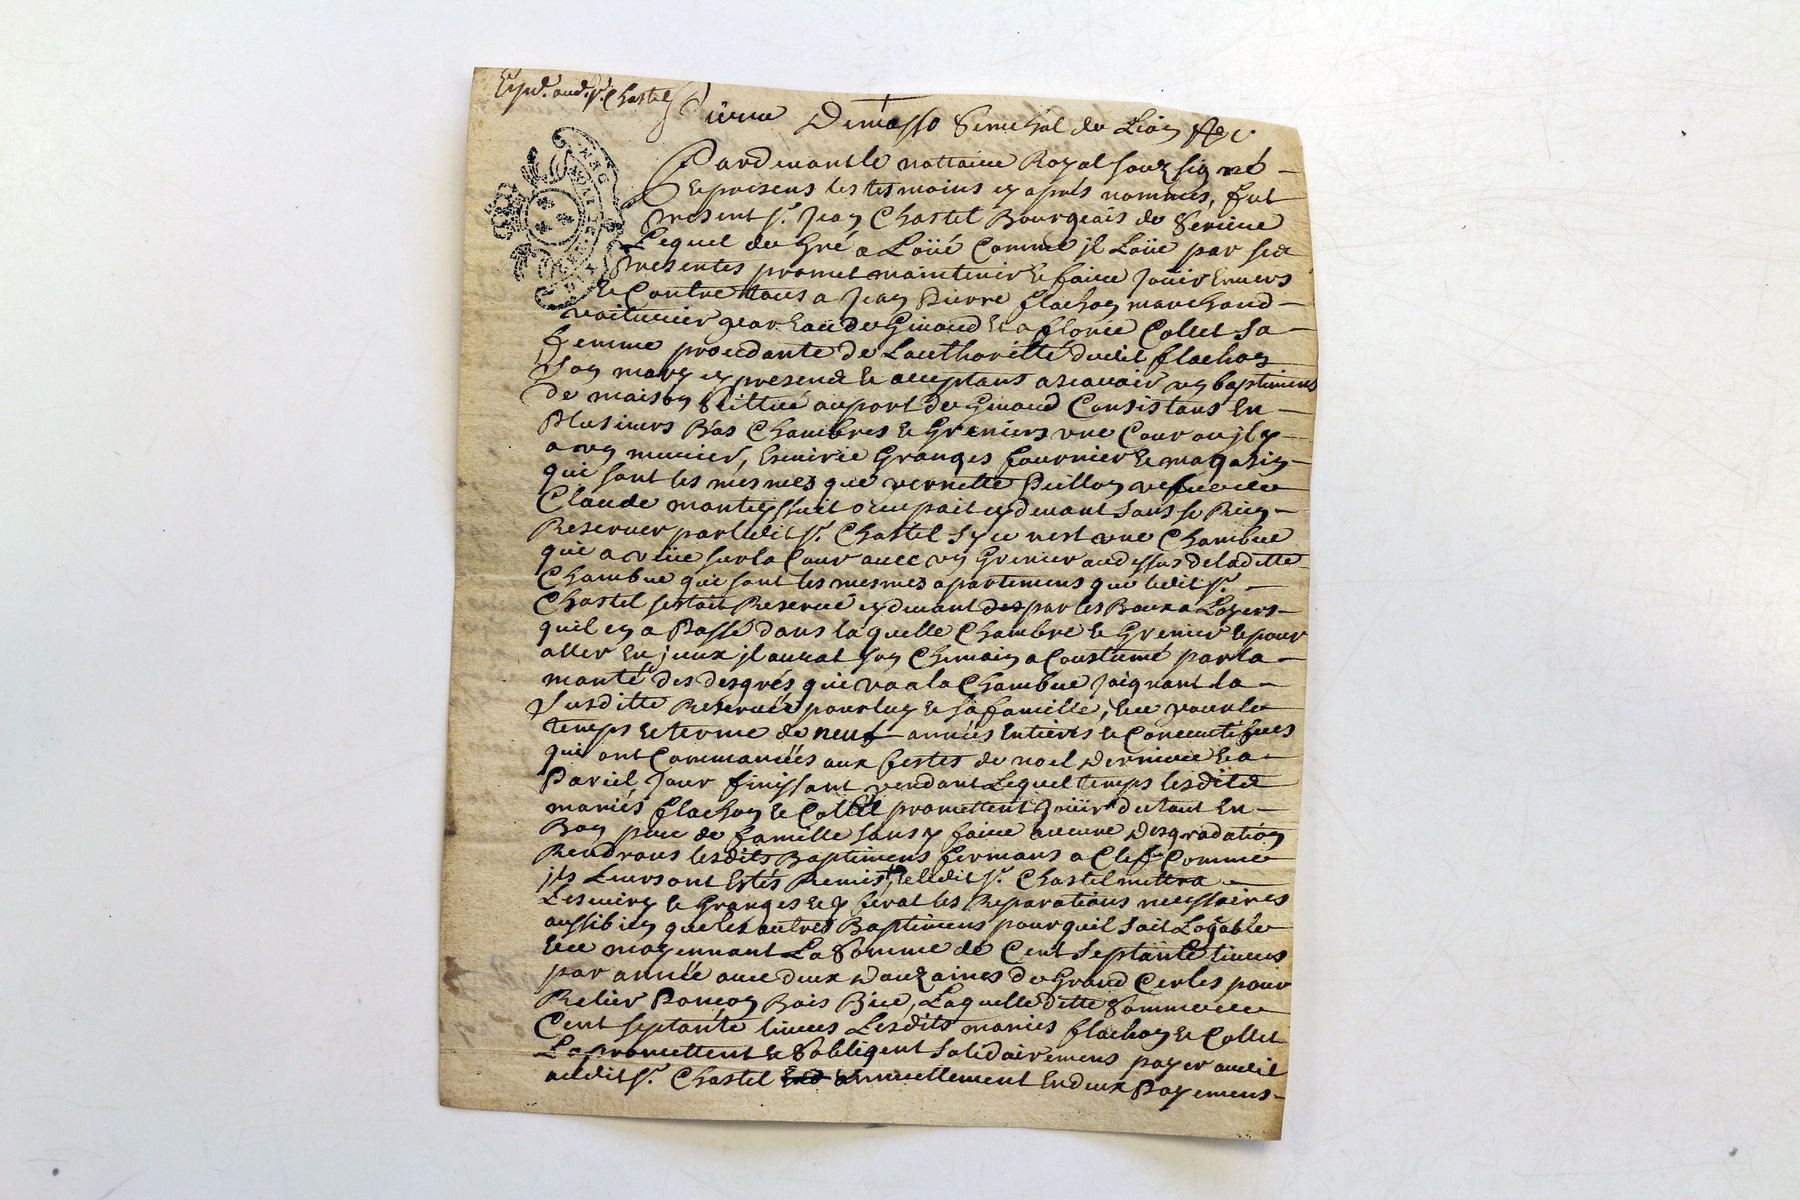 Expd. aud. sr. Chastel
Pierre Demasso Senechal de Lion &c
Pardevant le nottaire Royal souzsigné
et presens les tesmoins cy aprés nommes, fut
present sr. Jean Chastel Bourgeois de Seriere
Lequel de gré a Loüé Comme jl Loüe par ses
presentes promet maintenir et faire joüir envers
et Contre tous a Jean Pierre flachon marchand
voiturier par eau de Givord et a florie Collet sa
femme procedante de Lauthoritté dudit flachon
son mary cy present et acceptans ascavoir un baptimens
de maison scittué au port de Givord Consistans en
Plusieurs Bas Chambres et Greniers une Cour ou jl y
a un murier, Escuirie Granges fournier et magasin
qui sont les mesmes que vernette Pullon vefve de
Claude monteyssuit occupait cy devant sans se Rien
Reserver par ledit sr. Chastel sy ce nest une Chambre
qui a veüe sur la Cour avec un Grenier au dessus de laditte
Chambre qui sont les mesmes apartemens que ledit sr.
Chastel sestoit Reservé cy devant des par les Baux a Loyers
quil en a Passé dans laquelle Chambre et Grenier et pour
aller en jceux jl aurat son Chemain a Coustumé par la
monté des desgrés qui va a la Chambre joignant la
susditte Reservée pour luy et sa famille, et ce pour le
temps et terme de neuf années entieres et Concecutifves
qui ont Commancées aux festes de noel derniere et a
Pariel jour finissant pendant Lequel temps lesdits
mariés flachon et Collet promettent joüir du tout en
Bon pere de famille sans y faire aucune desgradation
Rendrons lesdits Baptimens fermans a Clef Comme
jls Leurs ont Estés Remis, et ledit sr. Chastel mettra
Lescuiry et Granges et y ferat les Reparations necessaires
aussibien que les autres Baptimens pour quil soit Logable
et ce moyennant La Somme de Cent septante livres
par année avec deux douzaines de Grand Cercles pour
Relier Poncon Bois Bize, Laquelle ditte Somme de
Cent septante livres Lesdits mariés flachon et Collet
La promettent et sobligent solidairemens payer audit
audit sr. Chastel annuellement en deux Payemens